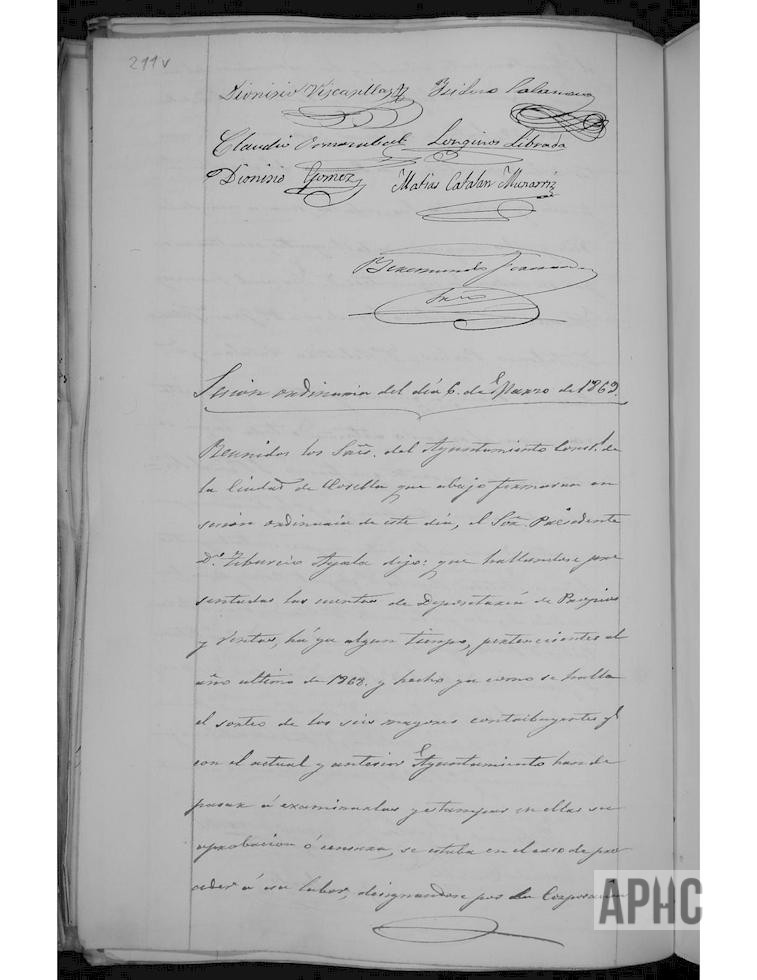 211v
Dionisio Viscasillas Ysidro Calamon
Claudio Longinos Librada
Dionisio Gomez Matias Catalan Munarriz
Beremundo
Srio
Sesion ordinaria del dia 6. de Marzo de 1869.
Reunidos los Sres. del Ayuntamiento Const.l de
la Ciudad de que abajo firmaran en
sesion ordinaria de este dia, el Sor. Presidente
Dn. Tiburcio Ayala dijo: que hallandose pre
sentadas las cuentas de Depositaría de Propios
y Ventas, há ya algun tiempo, pertenecientes al
año ultimo de 1868. y hecho ya como se halla
el sorteo de los seis mayores contribuyentes qe
con el actual y anterior Ayuntamiento han de
pasar á examinarlas y estampar en ellas su
aprobacion ó censura, se estaba en el caso de pro
ceder á su labor, designandose por la Corporacion
APHC